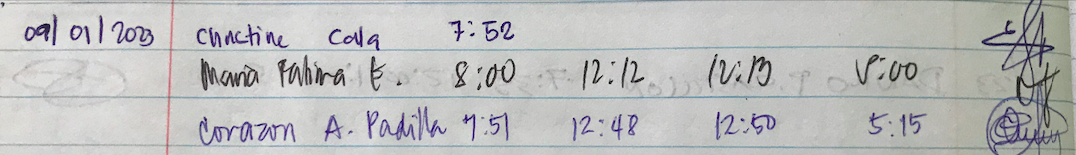 09/01/2023 Christine Cala 7:52
Maria Fatima E. 8:00 12:12 12:13 5:00
Corazon A. Padilla 7:51 12:48 12:50 5:15